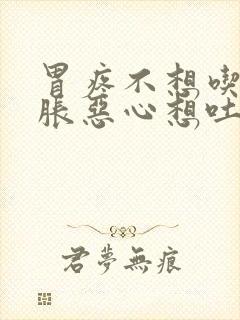 胃疼不想喫
脹惡心想吐
君夢無痕